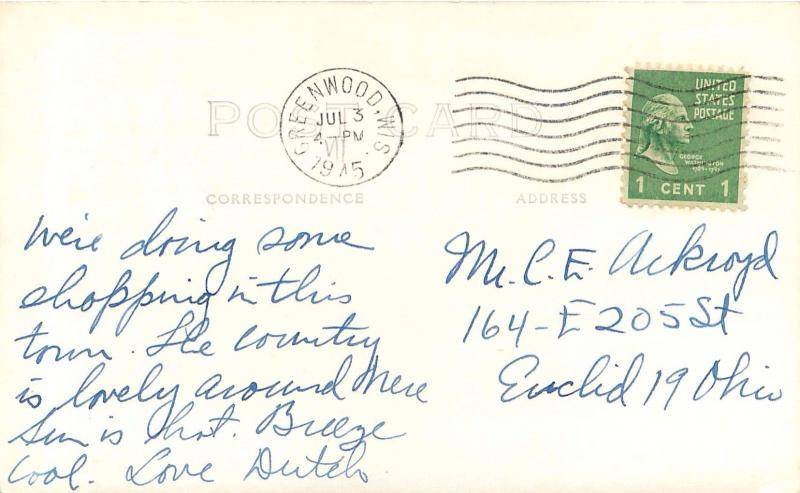 POST CARD
GREENWOOD, WIS.
JUL 3
4 - PM
1945
UNITED
STATES
POSTAGE
GEORGE
WASHINGTON
1789-1797
1 CENT 1
CORRESPONDENCE
ADDRESS
We're doing some
shopping in this
town. The country
is lovely around here
Sun is hot. Breeze
cool. Love Dutch.
Mr. C. E. Ackroyd
164-E 205 St
Euclid 19 Ohio